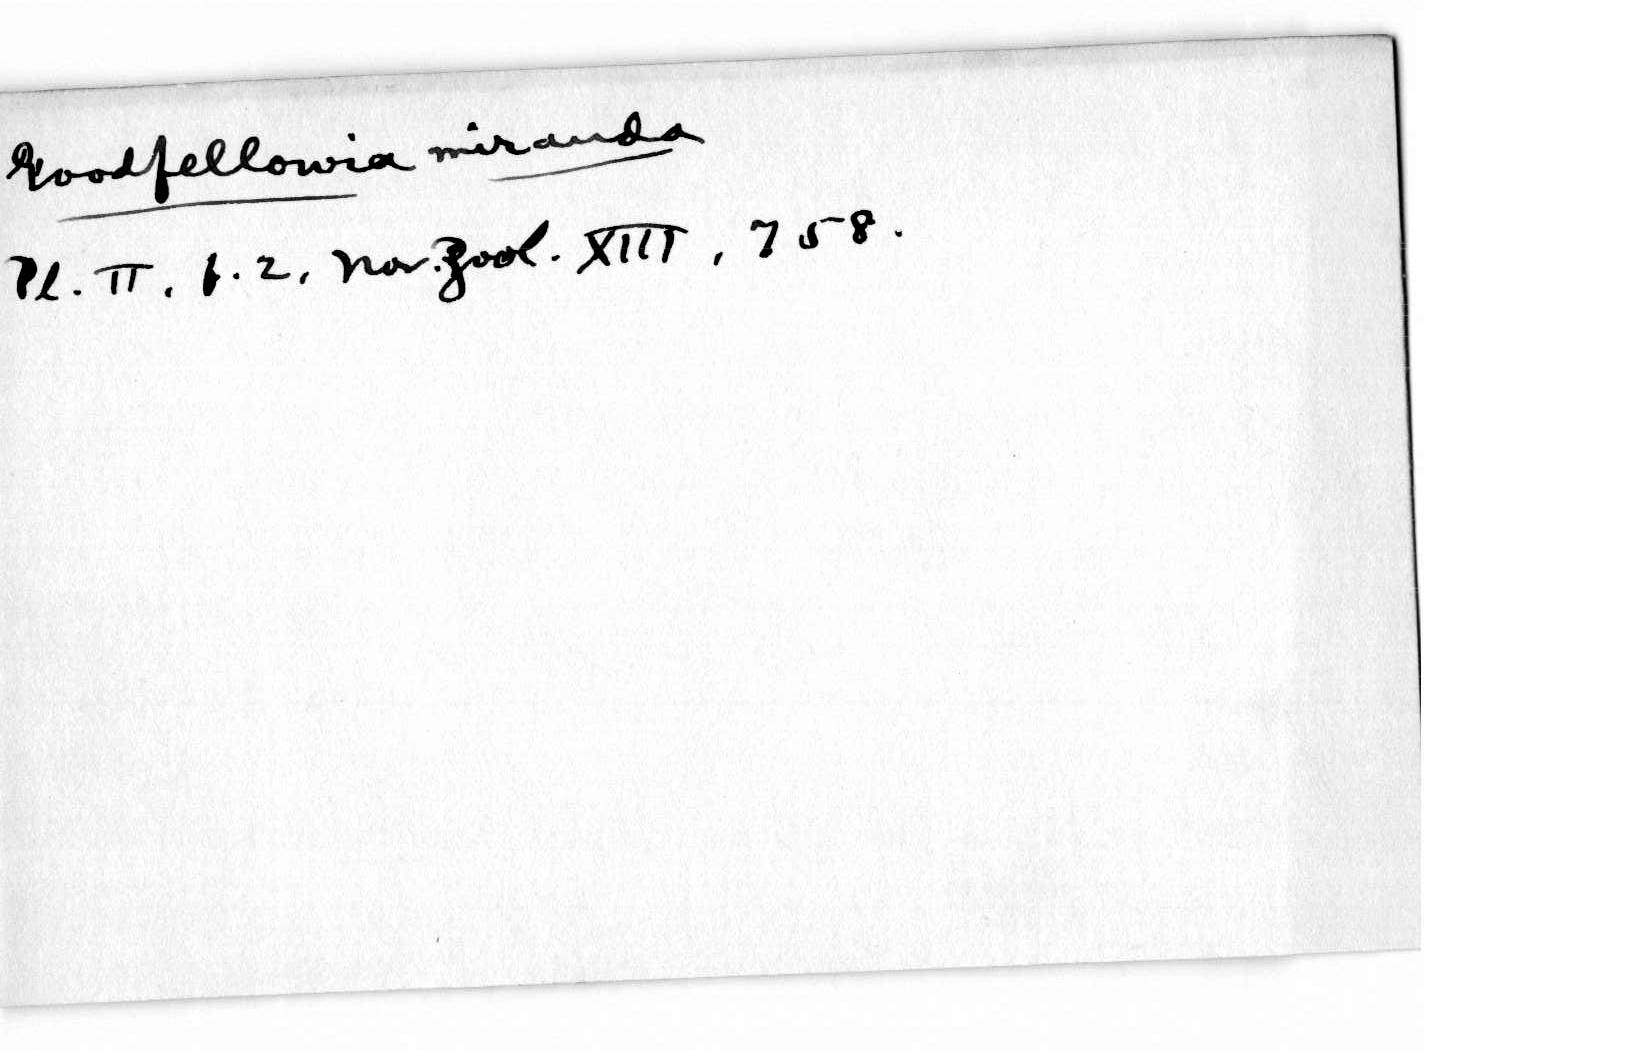 Goodfellowia miranda
Pl. II. f. 2, Nov. Zool. XIII, 758.